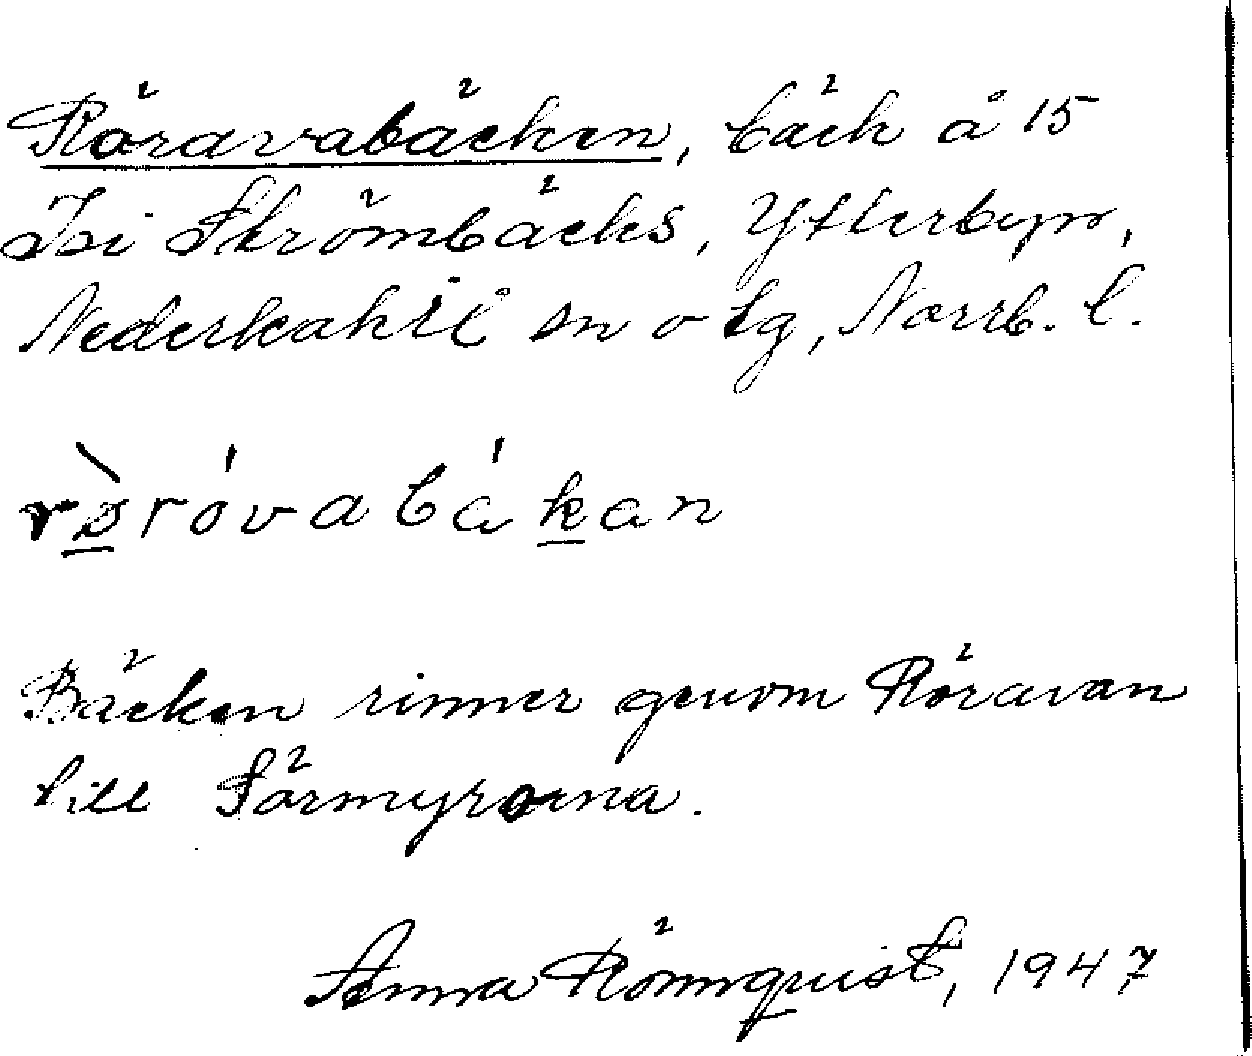 Röravabäcken, bäck å 15
Isi Strömbäcks, Ytterbyn,
Nederkalix sn o tg, Norrb. l.
Bäcken rinner genom Röravan
till Sörmyrarna.
Anna Rönnquist, 1947